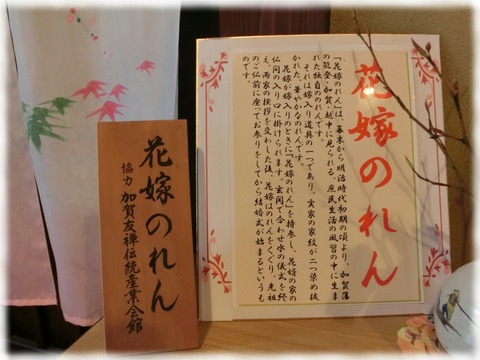 花嫁のれん
「花嫁のれん」は、幕末から明治時代初期の頃より、加賀藩
の能登・加賀・越中に見られる、庶民生活の風習の中に生ま
れた独自ののれんです。
それは嫁入り道具の一つであり、実家の家紋が二つ染め抜
かれた、華やかなのれんです。
花嫁が嫁入りのときに「花嫁のれん」を持参し、花婿の家の
仏間の入り口に掛けられます。玄関で合わせ水の儀式を終
え、両家の挨拶を交わした後、花嫁はのれんをくぐり、先祖
のご仏前に座ってお参りをしてから結婚式が始まるというも
のです。
花嫁のれん
協力 加賀友禅伝統産業会館